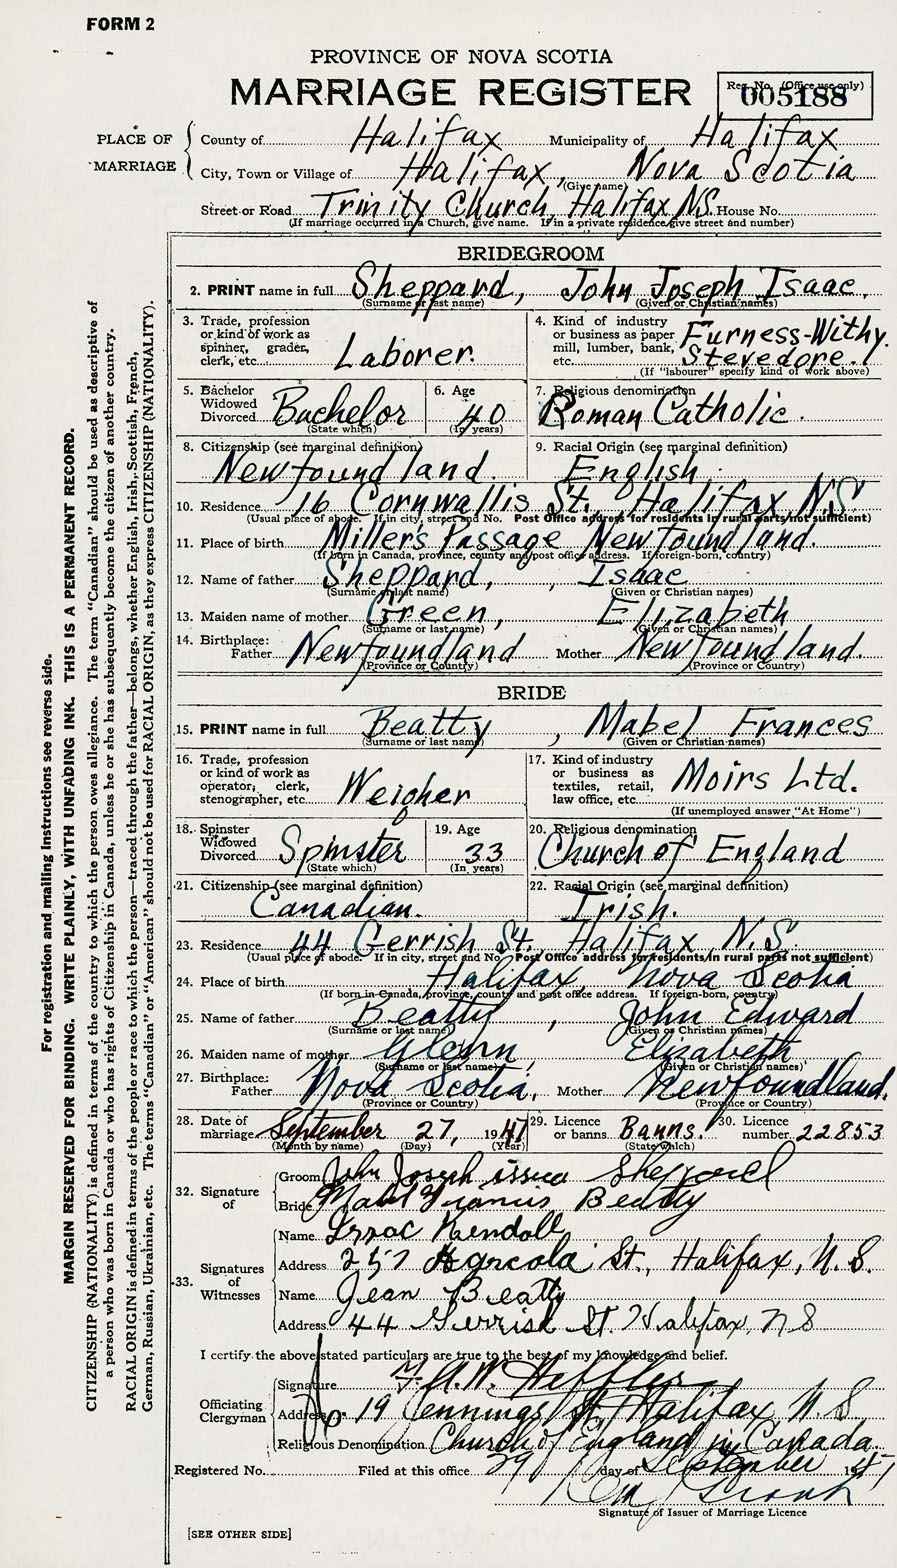 FORM 2
PROVINCE OF NOVA SCOTIA
MARRIAGE REGISTER
Reg. No. (Office use only)
005188
PLACE OF MARRIAGE
County of Halifax Municipality of Halifax
City, Town or Village of Halifax, Nova Scotia
(Give name)
Street or Road Trinity Church, Halifax N.S. House No.
(If marriage occurred in a Church, give name. If in a private residence give street and number)
BRIDEGROOM
2. PRINT name in full Sheppard, John Joseph Isaac.
(Surname or last name) (Given or Christian names)
3. Trade, profession or kind of work as spinner, grader, clerk, etc. Laborer.
4. Kind of industry or business as paper mill, lumber, bank, etc. Furness-Withy. Stevedore.
(If "labourer" specify kind of work above)
5. Bachelor Widowed Divorced Bachelor
(State which)
6. Age 40
(In years)
7. Religious denomination
Roman Catholic.
8. Citizenship (see marginal definition)
Newfoundland.
9. Racial Origin (see marginal definition)
English.
10. Residence 16 Cornwallis St. Halifax N.S
(Usual place of abode. If in city, street and No. Post Office address for residents in rural parts not sufficient)
11. Place of birth Millers Passage Newfoundland.
(If born in Canada, province, county and post office address. If foreign-born, country)
12. Name of father Sheppard, , Isaac
(Surname or last name) (Given or Christian names)
13. Maiden name of mother Green, Elizabeth
(Surname or last name) (Given or Christian names)
14. Birthplace:
Father Newfoundland Mother Newfoundland.
(Province or Country) (Province or Country)
BRIDE
15. PRINT name in full Beatty, Mabel Frances
(Surname or last name) (Given or Christian names)
16. Trade, profession or kind of work as operator, clerk, stenographer, etc. Weigher
17. Kind of industry or business as textiles, retail, law office, etc. Moirs Ltd.
(If unemployed answer "At Home")
18. Spinster Widowed Divorced Spinster
(State which)
19. Age 33
(In years)
20. Religious denomination
Church of England
21. Citizenship (see marginal definition)
Canadian.
22. Racial Origin (see marginal definition)
Irish.
23. Residence 44 Gerrish St. Halifax N.S
(Usual place of abode. If in city, street and No. Post Office address for residents in rural parts not sufficient)
24. Place of birth Halifax, Nova Scotia
(If born in Canada, province, county and post office address. If foreign-born, country)
25. Name of father Beatty, John Edward
(Surname or last name) (Given or Christian names)
26. Maiden name of mother Glenn, Elizabeth
(Surname or last name) (Given or Christian names)
27. Birthplace:
Father Nova Scotia, Mother Newfoundland.
(Province or Country) (Province or Country)
28. Date of marriage September 27, 1947
(Month by name) (Day) (Year)
29. Licence or banns Banns.
(State which)
30. Licence number 22853
32. Signature of
Groom John Joseph Sheppard
Bride Mabel Francis Beatty
33. Signatures of Witnesses
Name Issac Kendall
Address 257 Agricola St., Halifax, N.S.
Name Jean Beatty
Address 44 Gerrish St. Halifax, N S
I certify the above stated particulars are true to the best of my knowledge and belief.
Officiating Clergyman
Signature A.W. Heffler
Address 19 Jennings St, Halifax N.S
Religious Denomination Church of England in Canada.
Registered No. Filed at this office 29 day of September 1947
Signature of Issuer of Marriage Licence
[SEE OTHER SIDE]
For registration and mailing instructions see reverse side.
MARGIN RESERVED FOR BINDING. WRITE PLAINLY, WITH UNFADING INK. THIS IS A PERMANENT RECORD.
CITIZENSHIP (NATIONALITY) is defined in terms of the country to which the person owes allegiance. The term "Canadian" should be used as descriptive of
a person who was born in Canada or who has rights of Citizenship in Canada, unless he or she has subsequently become the citizen of another country.
RACIAL ORIGIN is defined in terms of the people or race to which the person—traced through the father—belongs, whether English, Irish, Scottish, French,
German, Russian, Ukrainian, etc. The terms "Canadian" or "American" should not be used for RACIAL ORIGIN, as they express CITIZENSHIP (NATIONALITY).